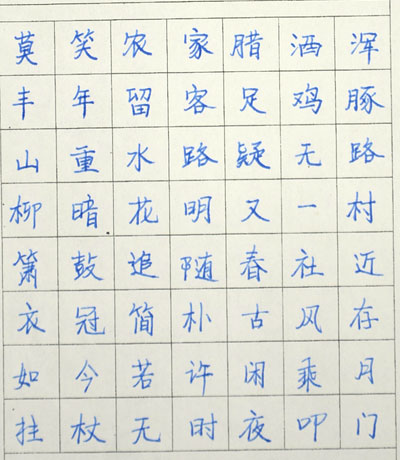 莫笑农家腊酒浑
丰年留客足鸡豚
山重水路疑无路
柳暗花明又一村
箫鼓追随春社近
衣冠简朴古风存
如今若许闲乘月
拄杖无时夜叩门